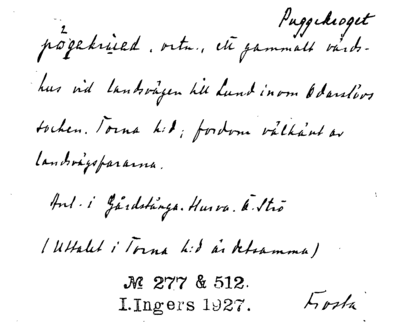 Puggekroget
pǫ̈gekrųed, ortn., ett gammalt värds-
hus vid landsvägen till Lund inom Odarslövs
socken. Torna h:d; fordom välkänt av
landsvägsfararna.
Ant. i Gårdstånga. Hurva. Ö. Strö
(Uttalet i Torna h:d är detsamma)
№ 277 & 512.
I. Ingers 1927.
Frosta